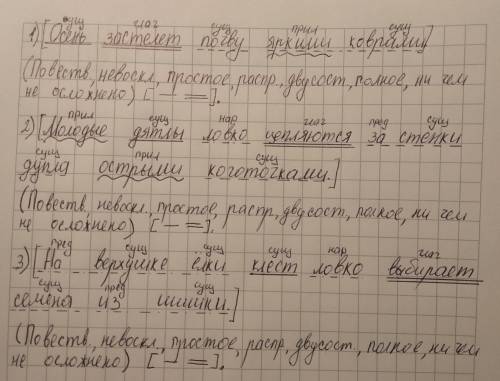 сущ глаг сущ прил сущ
1) [Осень застелет почву яркими коврами]
(Повеств, невоскл, простое, распр, двусост, полное, ни чем
не осложнено) [— =].
прил сущ нар глаг пред сущ
2) [Молодые дятлы ловко цепляются за стенки
сущ прил сущ
дупла острыми коготочками.]
(Повеств, невоскл, простое, распр, двусост, полное, ни чем
не осложнено) [— =].
пред сущ сущ сущ нар глаг
3) [На верхушке ёлки клест ловко выбирает
сущ пред сущ
семена из шишки.]
(Повеств, невоскл, простое, распр, двусост, полное, ни чем
не осложнено) [— =].